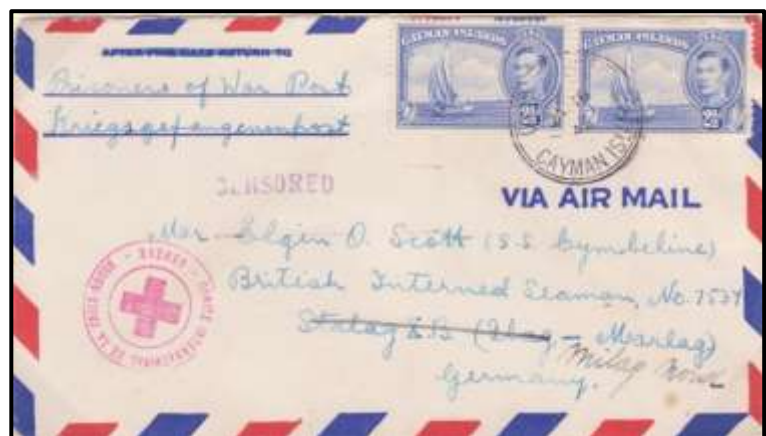 AFTER FIVE DAYS RETURN TO
Prisoners of War Post
Kriegsgefangenenpost
CAYMAN ISLANDS
CAYMAN ISLANDS
CAYMAN ISL
CENSORED
VIA AIR MAIL
Mr. Elgin O. Scott (S.S. Cymbeline)
British Interned Seaman, No. 
Stalag X B (Ilag - Marlag)
Milag Nord
Germany.
COMITÉ INTERNATIONAL DE LA CROIX-ROUGE - GENÈVE